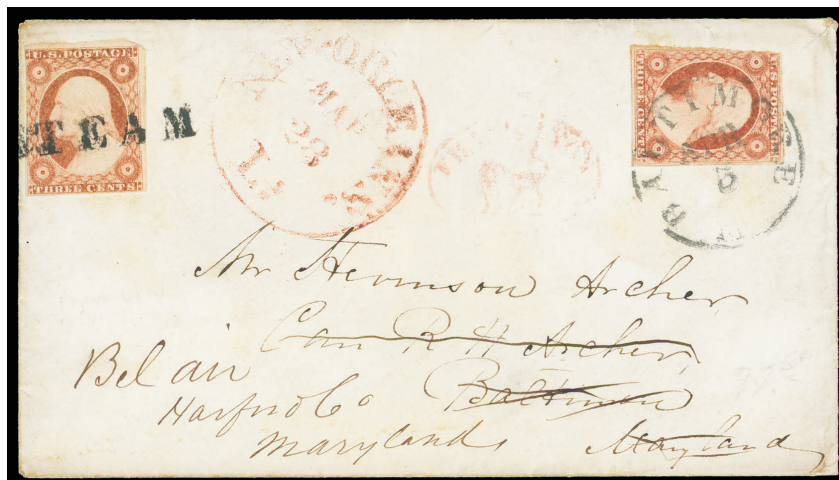 U.S. POSTAGE
THREE CENTS
STEAM
NEW-ORLEANS
MAR
28
La.
U.S. POSTAGE
THREE CENTS
BALTIMORE
APR
5
Mr Stevenson Archer,
Care R H Archer,
Baltimore
Maryland
Bel air
Harford Co
Maryland,